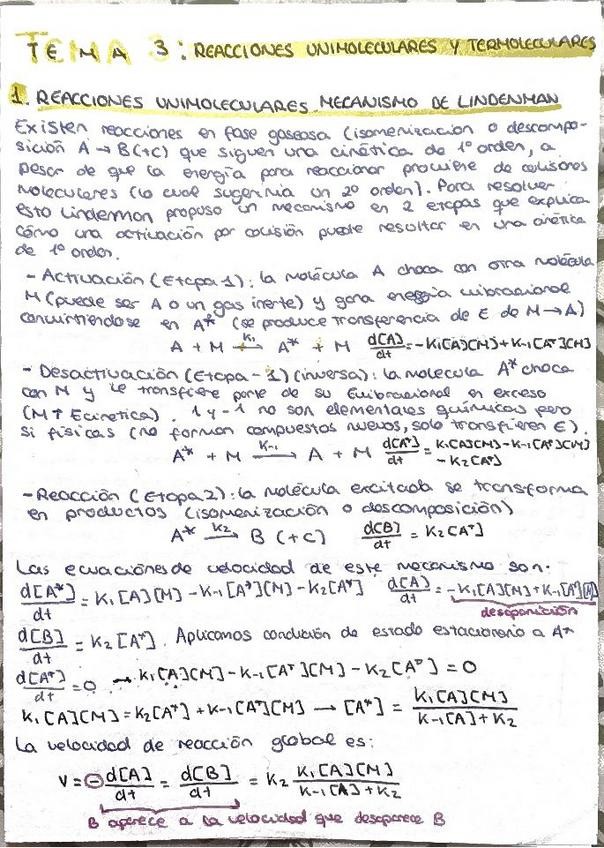 TEMA 3: REACCIONES UNIMOLECULARES Y TERMOLECULARES
1. REACCIONES UNIMOLECULARES MECANISMO DE LINDENMAN
Existen reacciones en fase gaseosa (isomerización o descompo-
sición A → B(+C) que siguen una cinética de 1º orden, a
pesar de que la energía para reaccionar proviene de colisiones
moleculares (lo cual sugeriría un 2º orden). Para resolver
esto Lindemon propuso un mecanismo en 2 etapas que explica
cómo una activación por colisión puede resultar en una cinética
de 1º orden.
- Activación (Etapa 1): la molécula A choca con otra molécula
M (puede ser A o un gas inerte) y gana energía vibracional
convirtiéndose en A* (se produce transferencia de E de M → A)
A + M —K1→ A* + M d[A]/dt = -K1[A][M] + K-1[A*][M]
- Desactivación (Etapa -1) (inversa): la molecula A* choca
con M y le transfiere parte de su Evibracional en exceso
(M↑ Ecinetica). 1 y -1 no son elementales químicas pero
si físicas (no forman compuestos nuevos, solo transfieren E).
A* + M —K-1→ A + M d[A*]/dt = K1[A][M] - K-1[A*][M]
- K2[A*]
- Reacción (Etapa 2): la molécula excitada se transforma
en productos (isomerización o descomposición)
A* —K2→ B (+C) d[B]/dt = K2[A*]
Las ecuaciones de velocidad de este mecanismo son:
d[A*]/dt = K1[A][M] - K-1[A*][M] - K2[A*] d[A]/dt = -K1[A][M] + K-1[A*][M]
desaparición
d[B]/dt = K2[A*]. Aplicamos condición de estado estacionario a A*
d[A*]/dt = 0 → K1[A][M] - K-1[A*][M] - K2[A*] = 0
K1[A][M] = K2[A*] + K-1[A*][M] → [A*] = K1[A][M]/K-1[A]+K2
La velocidad de reacción global es:
V = - d[A]/dt = d[B]/dt = K2 K1[A][M]/K-1[A]+K2
B aparece a la velocidad que desaparece B